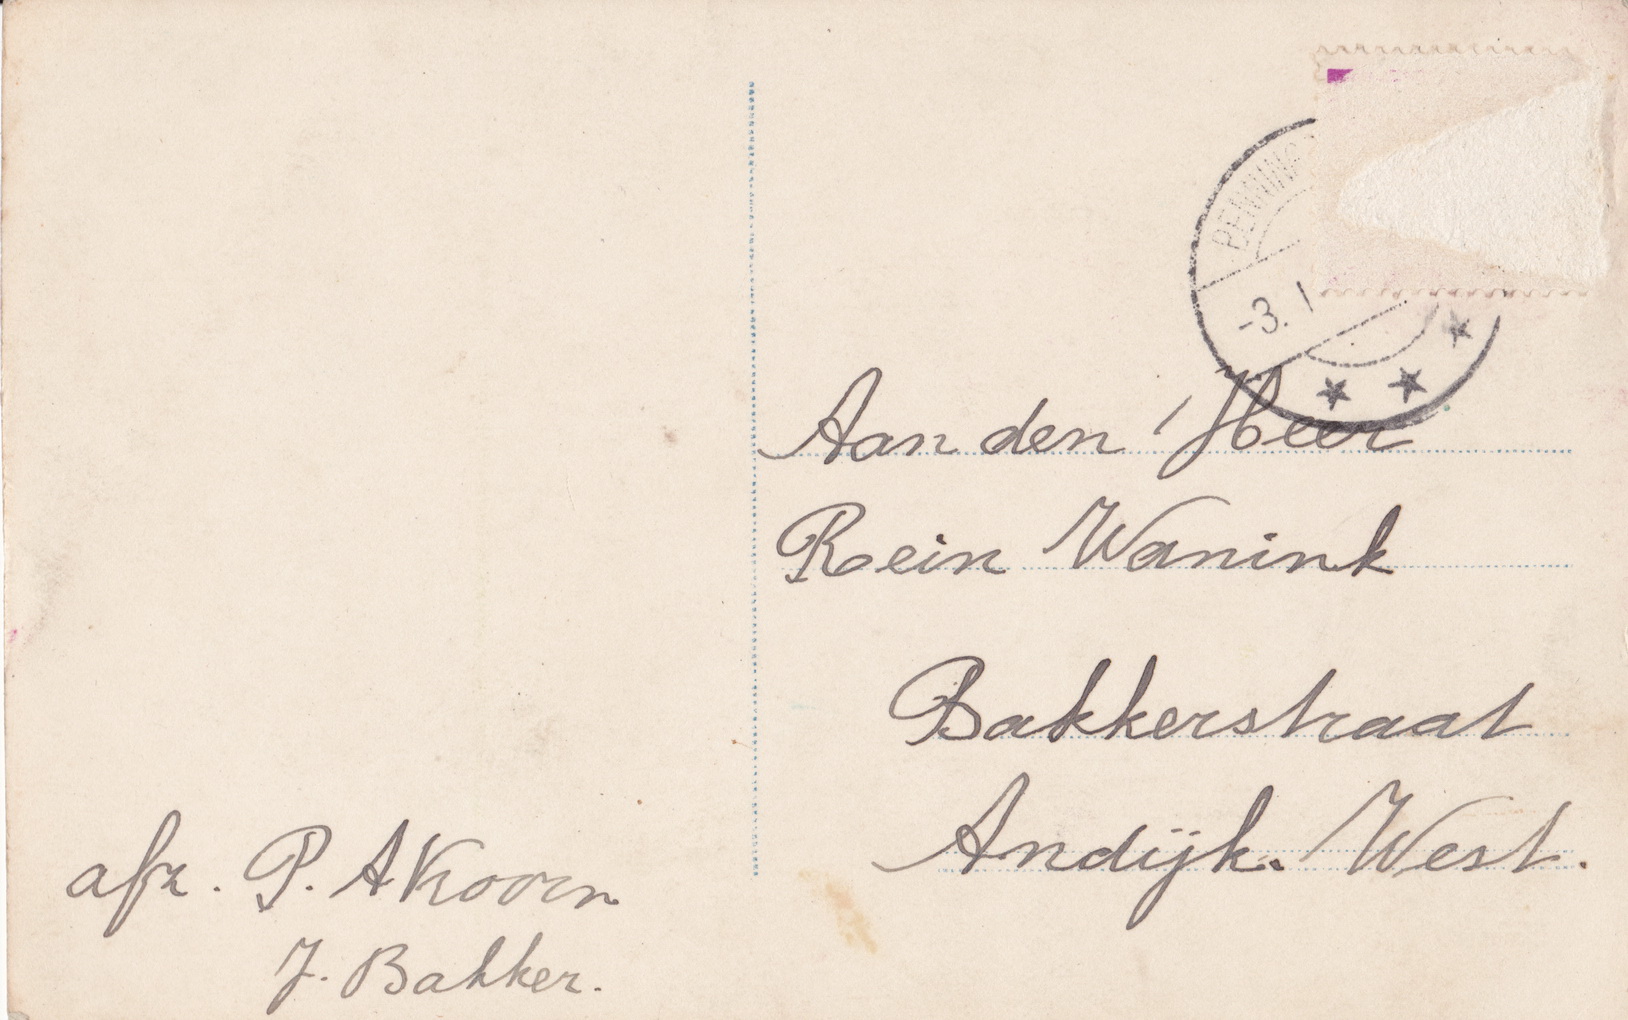 PENNING
-3. 1
Aan den Heer
Rein Wanink
Bakkerstraat
Andijk. West.
afz. P. AKoorn
J. Bakker.